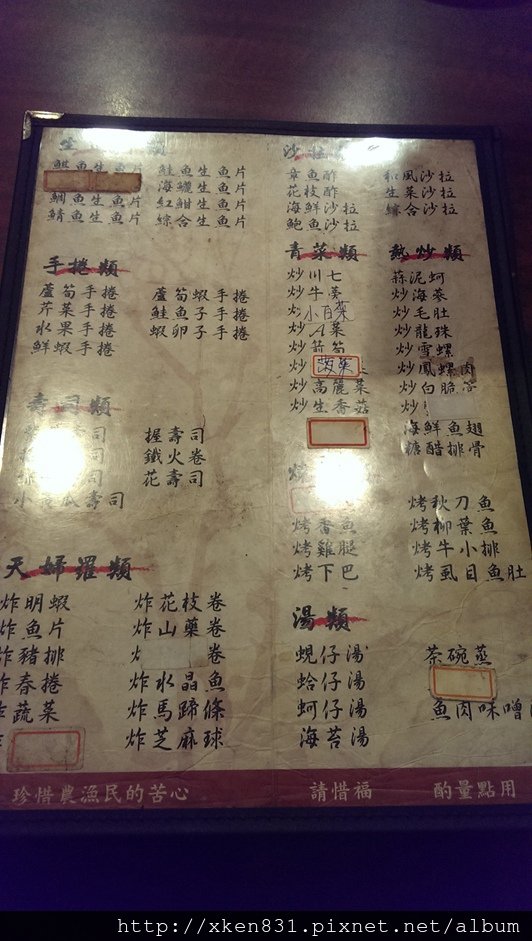 生
生魚片
鯛魚生魚片
鯖魚生魚片
鮭魚生魚片
海鱺生魚片
紅魽生魚片
綜合生魚片
手捲類
蘆筍手捲
芹菜手捲
水果手捲
鮮蝦手捲
蘆筍蝦手捲
鮭魚手捲
蝦卵子手捲
壽司類
司
司
小黃瓜壽司
握壽司
鐵火卷
花壽司
天婦羅類
炸明蝦
炸魚片
炸豬排
炸春捲
炸蔬菜
炸花枝卷
炸山藥卷
卷
炸水晶魚
炸馬蹄條
炸芝麻球
沙拉
章魚酢
花枝酢
海鮮沙拉
鮑魚沙拉
和風沙拉
生菜沙拉
綜合沙拉
青菜類
炒川七
炒牛蒡
炒小白菜
炒A菜
炒箭筍
炒
炒高麗菜
炒生香菇
熱炒類
蒜泥蚵
炒海蔘
炒毛肚
炒龍珠
炒雪螺
炒鳳螺肉
炒白脆
炒
海鮮魚翅
糖醋排骨
烤
烤香魚
烤雞腿
烤下巴
烤秋刀魚
烤柳葉魚
烤牛小排
烤虱目魚肚
湯類
蜆仔湯
蛤仔湯
蚵仔湯
海苔湯
茶碗蒸
魚肉味噌
珍惜農漁民的苦心 請惜福 酌量點用
http://xken831.pixnet.net/album